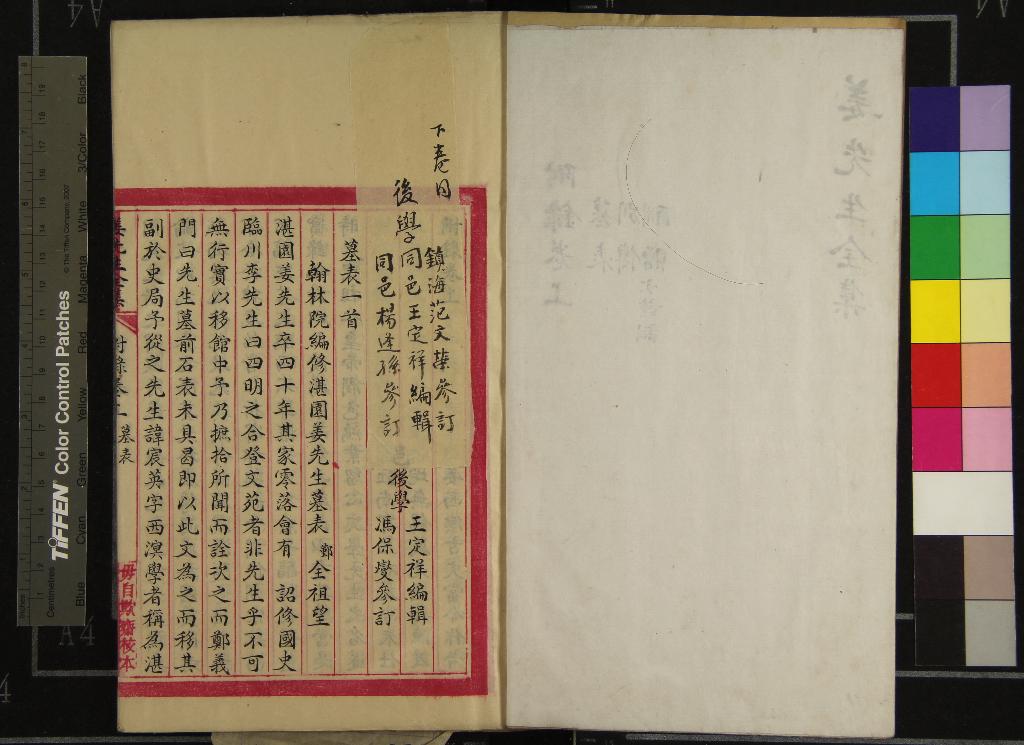 下卷同
鎮海范文
後學同邑王定祥編輯
同邑楊逢孫參訂
王定祥編輯
後學
馮保燮參訂
墓表一首
翰林院編修湛園姜先生墓表 鄞全祖望
湛園姜先生卒四十年其家零落會有 詔修國史
臨川李先生曰四明之合登文苑者非先生乎不可
無行實以移館中予乃摭拾所聞而詮次之而鄭義
門曰先生墓前石表未具曷即以此文為之而移其
副於史局予從之先生諱宸英字西溟學者稱為湛
姜先生全集
附錄卷上 墓表
毋自欺齋校本
姜先生全集
附錄卷上
墓表
TIFFEN Color Control Patches
© The Tiffen Company, 2007
Inches
Centimetres
Blue
Cyan
Green
Yellow
Red
Magenta
White
3/Color
Black
A4